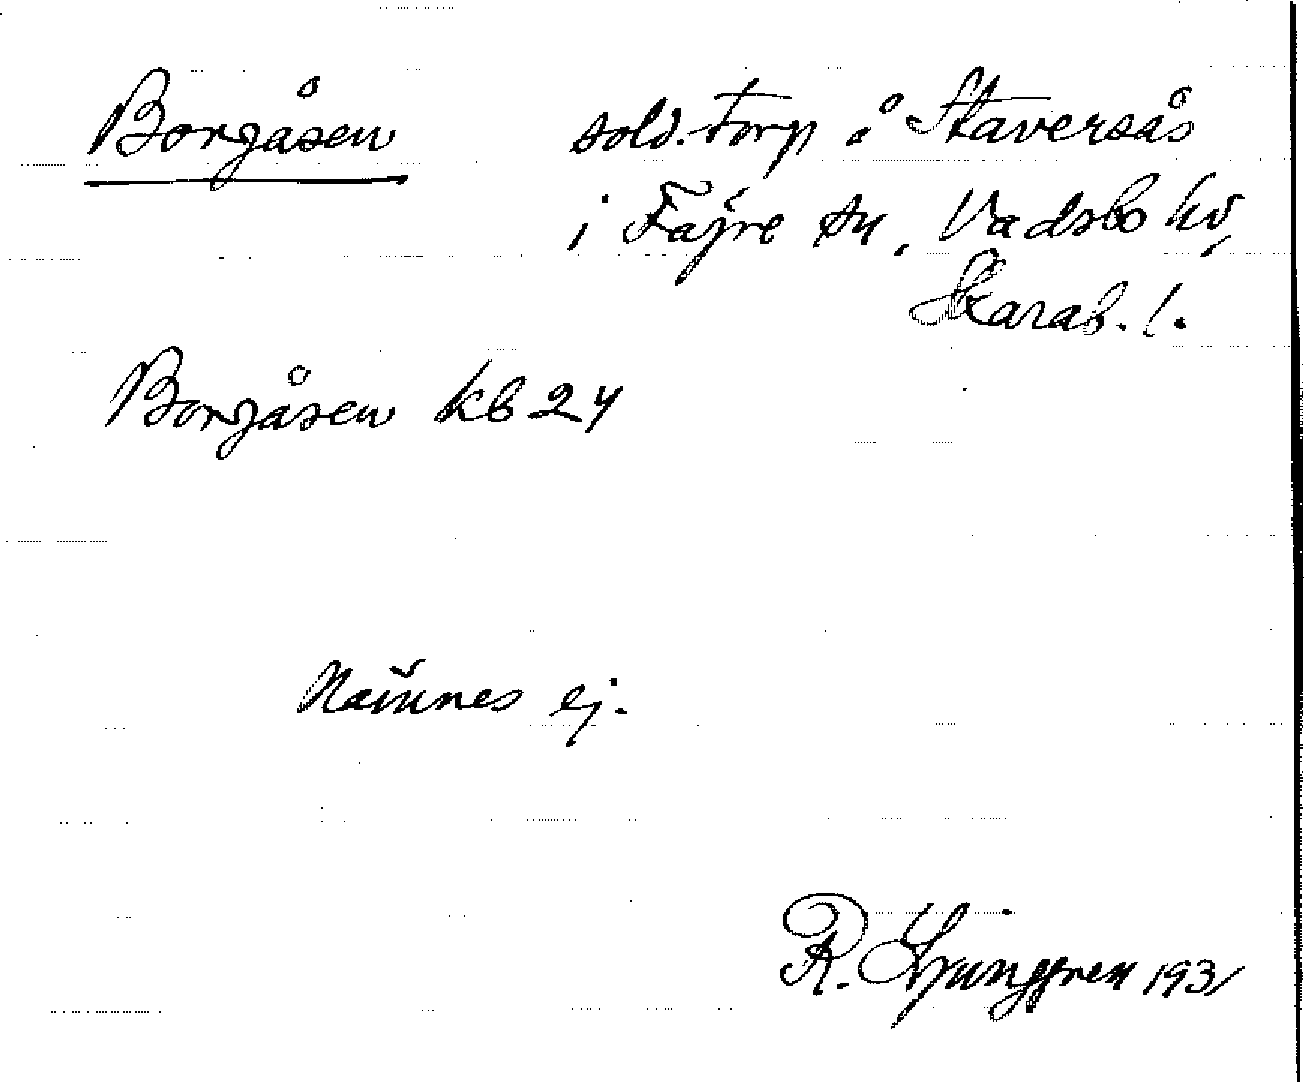 Borgåsen sold.torp å Staversås
i Fägre sn, Vadsbo hd,
Skarab. l.
Borgåsen kb 24
Nämnes ej.
R. Ljunggren 1931